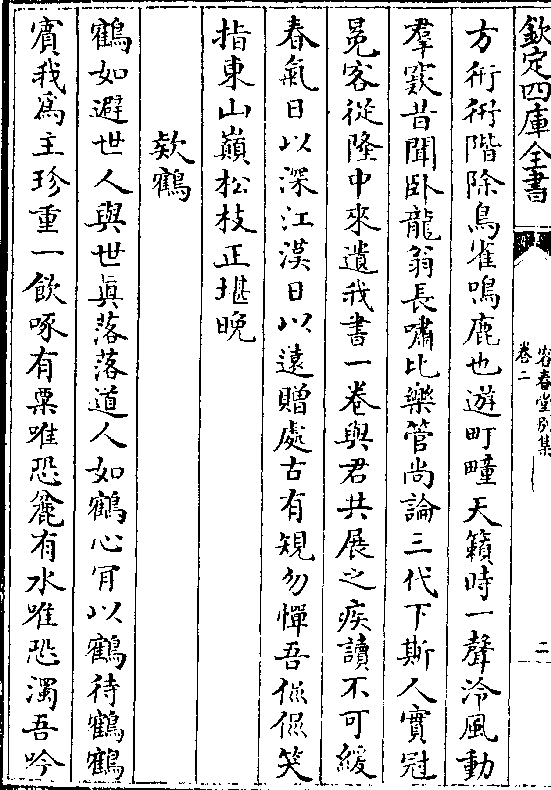 欽定四庫全書
容春堂別集
卷二
二
方術術階除鳥雀鳴鹿也遊町疃天籟時一聲泠風動
羣竅昔聞卧龍翁長嘯比樂管尚論三代下斯人實冠
冕客從隆中來遺我書一卷與君共展之疾讀不可緩
春氣日以深江漢日以遠贈處古有規勿憚吾𠈁𠈁笑
指東山巔松枝正堪晚
欵鶴
鶴如避世人與世眞落落道人如鶴心肎以鶴待鶴鶴
賓我爲主珍重一飲啄有粟唯恐麄有水唯恐濁吾吟